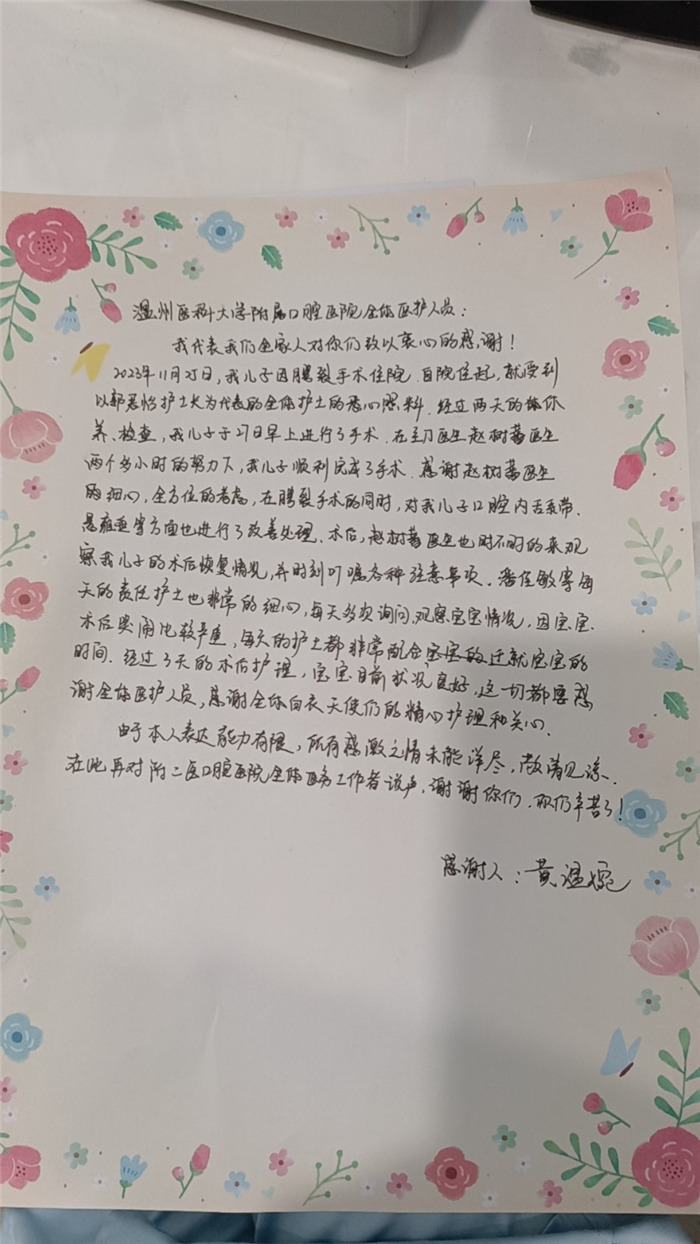 温州医科大学附属口腔医院全体医护人员：
我代表我们全家人对你们致以衷心的感谢！
2023年11月25日，我儿子因腭裂手术住院．自院住起，就受到
以郭恩怡护士长为代表的全体护士的悉心照料．经过两天的休
养、检查，我儿子于27日早上进行了手术．在主刀医生赵树蕃医生
两个多小时的努力下，我儿子顺利完成了手术．感谢赵树蕃医生
的细心，全方位的考虑，在腭裂手术的同时，对我儿子口腔内舌系带、
悬雍垂等方面也进行了改善处理．术后，赵树蕃医生也时不时的来观
察我儿子的术后恢复情况，并时刻叮嘱各种注意事项．潘佳敏等每
天的责任护士也非常的细心，每天多次询问、观察宝宝情况，因宝宝
术后哭闹比较严重，每天的护士都非常配合宝宝的迁就宝宝的
时间．经过3天的术后护理，宝宝目前状况良好，这一切都要感
谢全体医护人员，感谢全体白衣天使们的精心护理和关心．
由于本人表达能力有限，所有感激之情未能详尽，敬请见谅．
在此再对附二医口腔医院全体医务工作者说声，谢谢你们．你们辛苦了！
感谢人：黄温婉